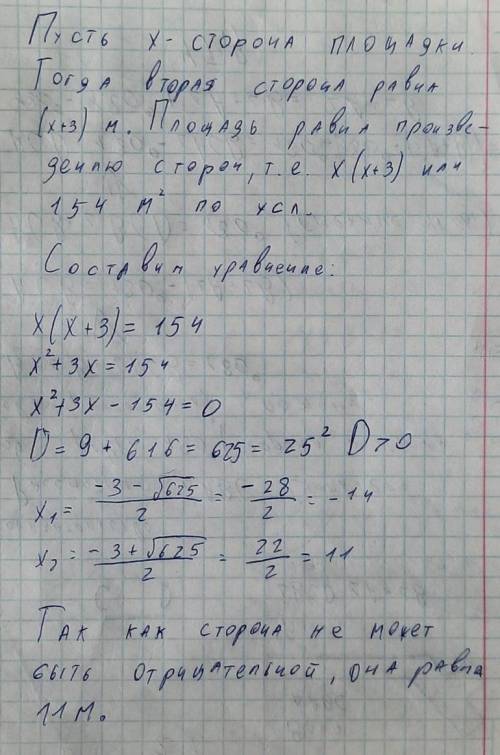 Пусть х - сторона площадки.
Тогда вторая сторона равна
(х+3) м. Площадь равна произве-
дению сторон, т.е. х(х+3) или
154 м² по усл.
Составим уравнение:
х(х+3) = 154
х²+3х = 154
х²+3х - 154 = 0
D = 9 + 616 = 625 = 25² D>0
х₁ = (-3 - √625)/2 = -28/2 = -14
х₂ = (-3 + √625)/2 = 22/2 = 11
Так как сторона не может
быть отрицательной, она равна
11 м.